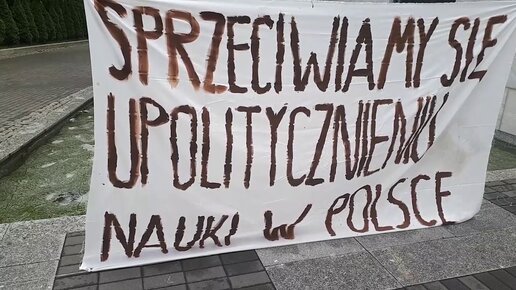 SPRZECIWIAMY SIĘ
UPOLITYCZNIENIU
NAUKI W POLSCE